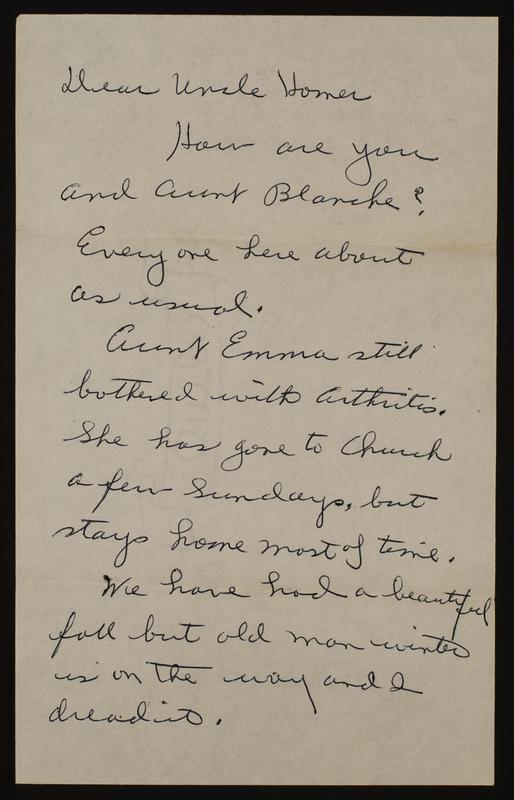 Dear Uncle Homer
How are you
and Aunt Blanche?
Every one here about
as usual.
Aunt Emma still
bothered with Arthritis.
She has gone to Church
a few Sundays, but
stays home most of time.
We have had a beautiful
fall but old man winter
is on the way and I
dread it.